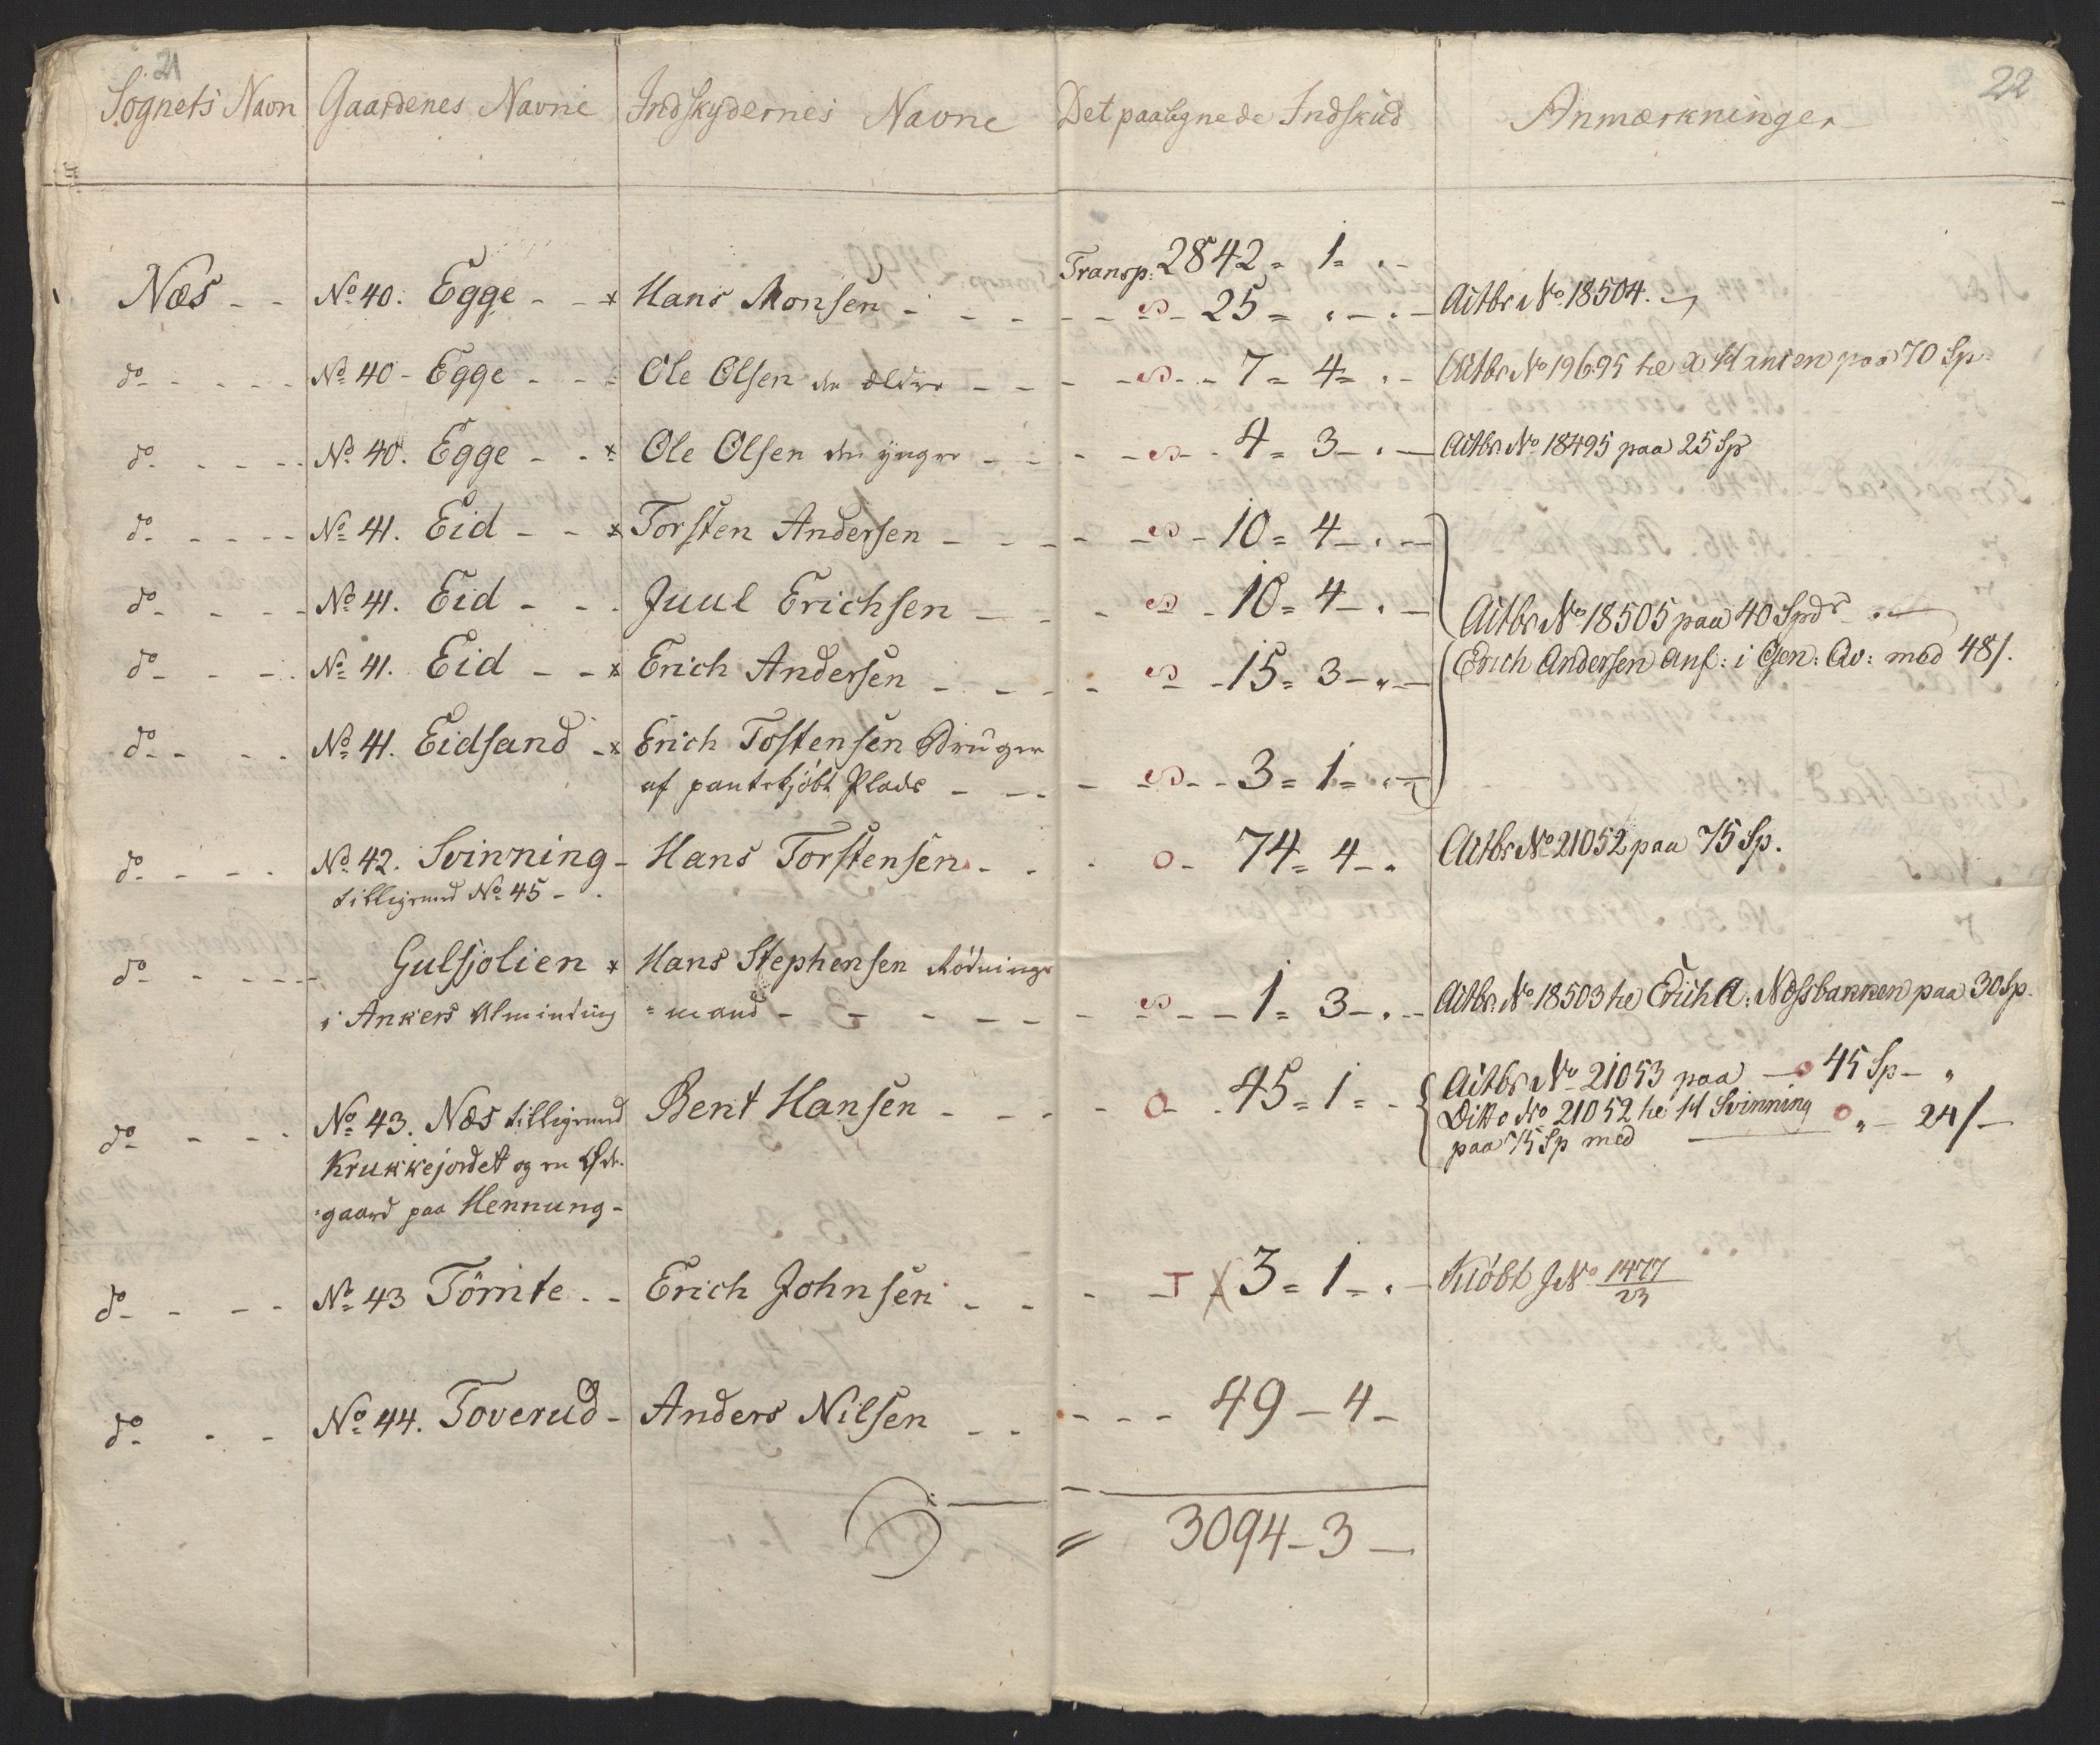 21
22
Sognets Navn | Gaardenes Navne | Indskydernes Navne | Det paalignede Indskud | Anmærkninger
Transp: 2842 = 1 = . -
Næs - - | No 40. Egge - - x | Hans Monsen - - - - | 25 = . - . - | Actbr No 18504.
do - - - - | No 40 - Egge - - - | Ole Olsen den ældre - - - | 7 = 4 = . - | Actbr No 19695 paa 70 Sp.
do - - - - | No 40. Egge - - x | Ole Olsen den yngre - - - | 4 = 3 - . - | Actbr No 18495 paa 25 Sp
do - - - - | No 41. Eid - - x | Torsten Andersen - - - | 10 = 4 - . -
do - - - - | No 41. Eid - - . | Juul Erichsen - - - | 10 = 4 - . - | Actbr No 18505 paa 40 Spdr
do - - - - | No 41. Eid - - x | Erich Andersen - - - | 15 = 3 - . - | Erich Andersen anf: i Gen: Qv: med 48/.
do - - - - | No 41. Eidsand - x | Erich Tostensen Bruger
af pantekjöbt Plads - - - | 3 = 1 = . -
do - - - - | No 42. Svinning - | Hans Torstensen - - | o - 74 = 4 - . | Actbr No 21052 paa 75 Sp.
tilligemed No 45 - .
do - - - - | Gulsjolien x | Hans Stephensen Rödnings
i Ankers Alminding | = mand - - - - | 1 = 3 - . - | Actbr No 18503 Erich A: Næssbakken paa 30 Sp.
do - - - - | No 43. Næs tilligemed | Bent Hansen - - - - | o - 45 = 1 = - | Actbr No 21053 paa - o 45 Sp - "
Ditto No 21052 H Svinning o " - 24/ -
paa 75 Sp med
Krukkejordet og en Öde-
gaard paa Hennung -
do - - - - | No 43 Tömte - - | Erich Johnsen - - | T X 3 = 1 = . - | Kiöbt J No 1477/23
do - - - | No 44. Toverud - | Anders Nilsen - - | - - - 49 - 4 -
= 3094 - 3 -